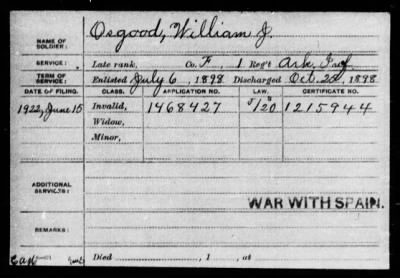 NAME OF SOLDIER: Osgood, William J.
SERVICE: Late rank, Co. F, 1 Reg't Ark. Inf.
TERM OF SERVICE: Enlisted July 6, 1898 Discharged Oct. 25, 1898
DATE OF FILING. CLASS. APPLICATION NO. LAW. CERTIFICATE NO.
1922, June 15 Invalid, 1468427 1215944
Widow,
Minor,
ADDITIONAL SERVICES:
WAR WITH SPAIN.
REMARKS:
Died , 1 , at